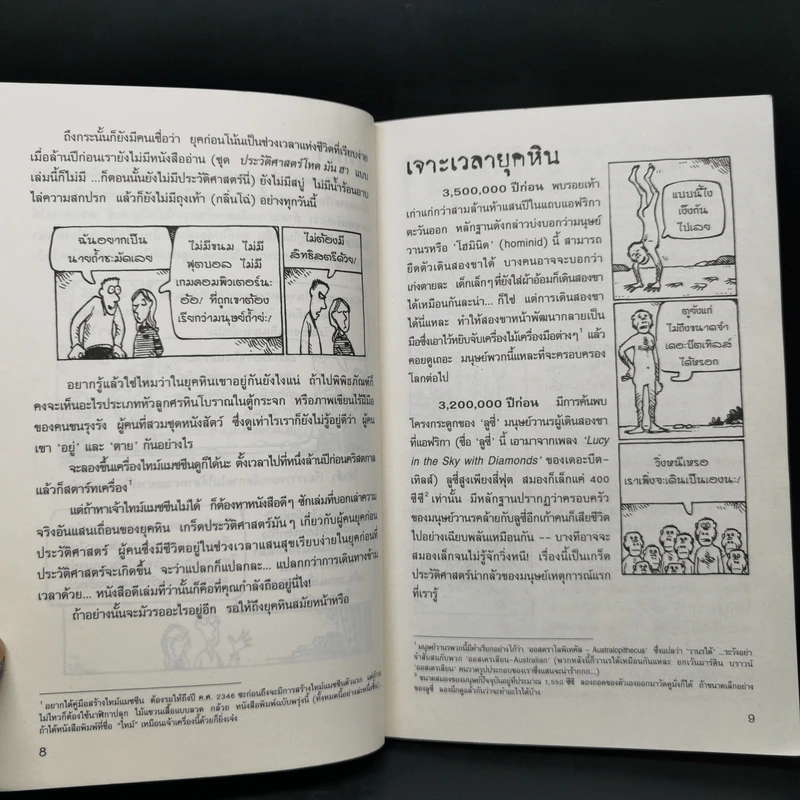 ถึงกระนั้นก็ยังมีคนเชื่อว่า ยุคก่อนโน้นเป็นช่วงเวลาแห่งชีวิตที่เรียบง่าย
เมื่อล้านปีก่อนเรายังไม่มีหนังสืออ่าน (ชุด ประวัติศาสตร์โหด มัน ฮา แบบ
เล่มนี้ก็ไม่มี ...ก็ตอนนั้นยังไม่มีประวัติศาสตร์นี่) ยังไม่มีสบู่ ไม่มีน้ำร้อนอาบ
ไล่ความสกปรก แล้วก็ยังไม่มีถุงเท้า (กลิ่นโฉ่) อย่างทุกวันนี้
ฉันอยากเป็น
นายถ้ำชะมัดเลย
ไม่มีขนม ไม่มี
ฟุตบอล ไม่มี
เกมคอมพิวเตอร์น่ะ
อ๋อ! ที่ถูกเขาต้อง
เรียกว่ามนุษย์ถ้ำย่ะ!
ไม่ต้องมี
สิทธิสตรีด้วย!
อยากรู้แล้วใช่ไหมว่าในยุคหินเขาอยู่กันยังไงแน่ ถ้าไปพิพิธภัณฑ์ก็
คงจะเห็นอะไรประเภทหัวลูกศรหินโบราณในตู้กระจก หรือภาพเขียนไร้ฝีมือ
ของคนขนรุงรัง ผู้คนที่สวมชุดหนังสัตว์ ซึ่งดูเท่าไรเราก็ยังไม่รู้อยู่ดีว่า ผู้คน
เขา ‘อยู่’ และ ‘ตาย’ กันอย่างไร
จะลองขึ้นเครื่องไทม์แมชชีนดูก็ได้นะ ตั้งเวลาไปที่หนึ่งล้านปีก่อนคริสตกาล
แล้วก็สตาร์ทเครื่อง¹
แต่ถ้าหาเจ้าไทม์แมชชีนไม่ได้ ก็ต้องหาหนังสือดีๆ ซักเล่มที่บอกเล่าความ
จริงอันแสนเถื่อนของยุคหิน เกร็ดประวัติศาสตร์มันๆ เกี่ยวกับผู้คนยุคก่อน
ประวัติศาสตร์ ผู้คนซึ่งมีชีวิตอยู่ในช่วงเวลาแสนสุขเรียบง่ายในยุคก่อนที่
ประวัติศาสตร์จะเกิดขึ้น จะว่าแปลกก็แปลกละ... แปลกกว่าการเดินทางข้าม
เวลาด้วย... หนังสือดีเล่มที่ว่านั้นก็คือที่คุณกำลังถืออยู่นี่ไง!
ถ้าอย่างนั้นจะมัวรออะไรอยู่อีก รอให้ถึงยุคหินสมัยหน้าหรือ
¹ อยากได้คู่มือสร้างไทม์แมชชีน ต้องรอให้ถึงปี ค.ศ. 2346 ซะก่อนถึงจะมีการสร้างไทม์แมชชีนตัวแรก
ไม่ไหวก็ต้องใช้นาฬิกาปลุก ไม้แขวนเสื้อแบบลวด กล้วย หนังสือพิมพ์ฉบับพรุ่งนี้
ถ้าได้หนังสือพิมพ์ที่ชื่อ “ไทม์” เหมือนเจ้าเครื่องนี้ด้วยก็ยิ่งเจ๋ง
8
เจาะเวลายุคหิน
3,500,000 ปีก่อน พบรอยเท้า
เก่าแก่กว่าสามล้านห้าแสนปีในแถบแอฟริกา
ตะวันออก หลักฐานดังกล่าวบ่งบอกว่ามนุษย์
วานรหรือ ‘โฮมินิด’ (hominid) นี้ สามารถ
ยืดตัวเดินสองขาได้ บางคนอาจจะบอกว่า
เก่งตายละ เด็กเล็กๆ ที่ยังใส่ผ้าอ้อมก็เดินสองขา
ได้เหมือนกันละน่า... ก็ใช่ แต่การเดินสองขา
ได้นี่แหละ ทำให้สองขาหน้าพัฒนากลายเป็น
มือซึ่งเอาไว้หยิบจับเครื่องไม้เครื่องมือต่างๆ¹ แล้ว
คอยดูเถอะ มนุษย์พวกนี้แหละที่จะครอบครอง
โลกต่อไป
3,200,000 ปีก่อน มีการค้นพบ
โครงกระดูกของ ‘ลูซี่’ มนุษย์วานรผู้เดินสองขา
ที่แอฟริกา (ชื่อ ‘ลูซี่’ นี้ เอามาจากเพลง ‘Lucy
in the Sky with Diamonds’ ของเดอะบีต-
เทิลส์) ลูซี่สูงเพียงสี่ฟุต สมองก็เล็กแค่ 400
ซีซี² เท่านั้น มีหลักฐานปรากฏว่าครอบครัว
ของมนุษย์วานรคล้ายกับลูซี่อีกเก้าคนก็เสียชีวิต
ไปอย่างเฉียบพลันเหมือนกัน -- บางทีอาจจะ
สมองเล็กจนไม่รู้จักวิ่งหนี! เรื่องนี้เป็นเกร็ด
ประวัติศาสตร์น่ากลัวของมนุษย์เหตุการณ์แรก
ที่เรารู้
แบบนี้ไง
เจ๋งกัน
ไปเลย
ตูยังแก่
ไม่ถึงขนาดจำ
เดอะบีตเทิลส์
ได้หรอก
วิ่งหนีเหรอ
เราเพิ่งจะเดินเป็นเองนะ!
¹ มนุษย์วานรพวกนี้มีคำเรียกอย่างโก้ว่า ‘ออสตราโลพิเทคัส – Australopithecus’ ซึ่งแปลว่า ‘วานรใต้’ ...ระวังอย่า
จำสับสนกับพวก ‘ออสเตรเลียน-Australian’ (พวกหลังนี้ก็วานรใต้เหมือนกันแหละ ยกเว้นมาร์ติน บราวน์
‘ออสเตรเลียน’ คนวาดรูปประกอบของเราซึ่งแสนจะน่ารักกก...)
² ขนาดสมองของมนุษย์ปัจจุบันอยู่ที่ประมาณ 1,550 ซีซี ลองถอดของตัวเองออกมาวัดดูมั่งก็ได้ ถ้าขนาดเล็กอย่าง
ของลูซี่ ลองนึกดูแล้วกันว่าจะทำอะไรได้บ้าง
9